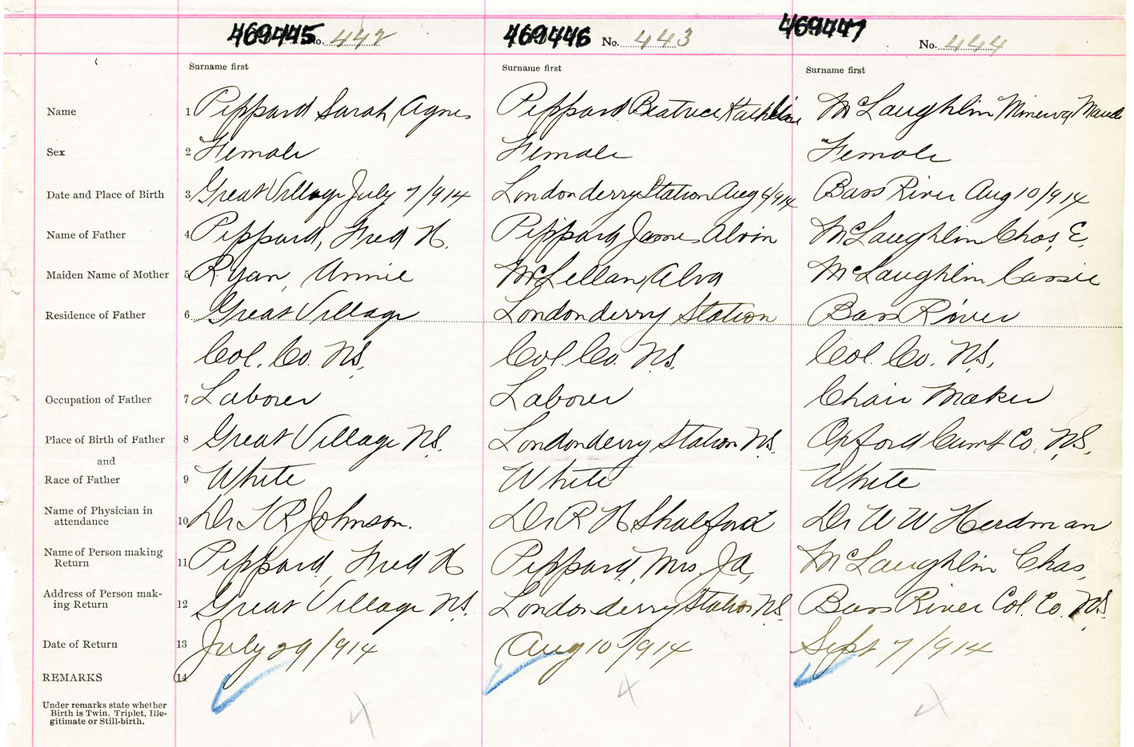 469445 No. 442 469446 No. 443 469447 No. 444
Surname first Surname first Surname first
Name 1 Peppard Sarah Agnes Peppard Beatrice Kathline McLaughlin Minerva Maud
Sex 2 Female Female Female
Date and Place of Birth 3 Great Village July 7/914 Londonderry Station Aug 6/914 Bass River Aug 10/914
Name of Father 4 Peppard, Fred H. Peppard James Alvin McLaughlin Chas. E.
Maiden Name of Mother 5 Ryan, Annie McLellan, Alva McLaughlin Cassie
Residence of Father 6 Great Village Londonderry Station Bass River
Col. Co. N.S. Col. Co. N.S. Col. Co. N.S.
Occupation of Father 7 Laborer Laborer Chair Maker
Place of Birth of Father 8 Great Village N.S. Londonderry Station N.S. Oxford Cumb Co. N.S.
and
Race of Father 9 White White White
Name of Physician in
attendance 10 Dr T R Johnson. Dr R H Dr W W Herdman
Name of Person making
Return 11 Peppard, Fred H Peppard, Mrs. Ja, McLaughlin Chas,
Address of Person mak-
ing Return 12 Great Village N.S. Londonderry Station N.S. Bass River Col. Co. N.S.
Date of Return 13 July 29/914 Aug 10/914 Sept 7/914
REMARKS 14
Under remarks state whether
Birth is Twin, Triplet, Ille-
gitimate or Still-birth.